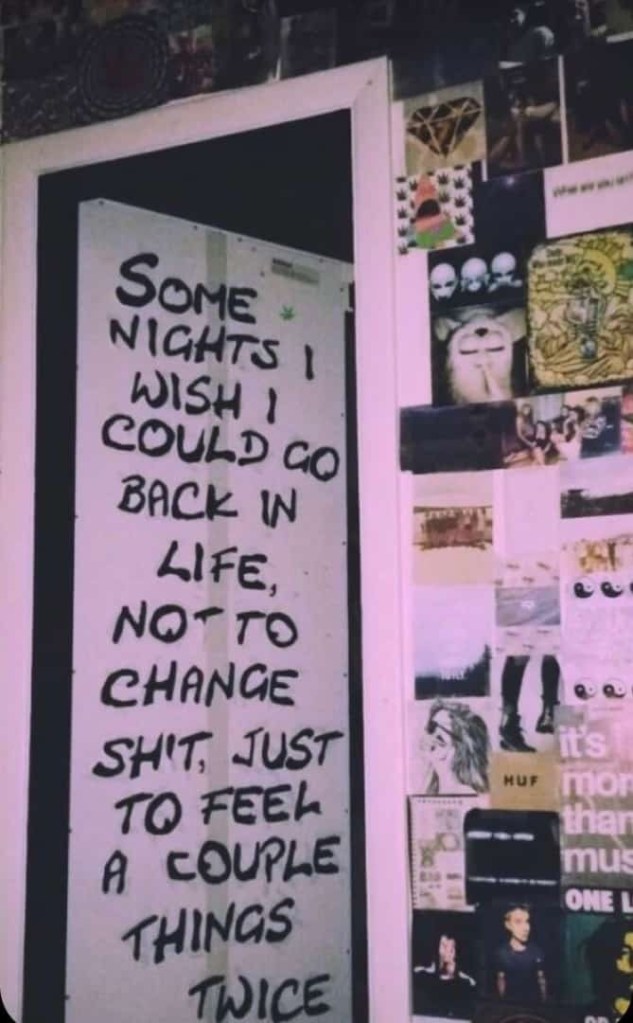 SOME
NIGHTS I
WISH I
COULD GO
BACK IN
LIFE,
NOT TO
CHANGE
SH'T, JUST
TO FEEL
A COUPLE
THINGS
TWICE
HUF
it's
mor
than
mus
ONE L